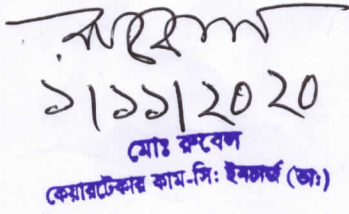 রুবেল
১/১১/2020
মোঃ রুবেল
কেয়ারটেকার কাম-সি: ইনচার্জ (ভাঃ)